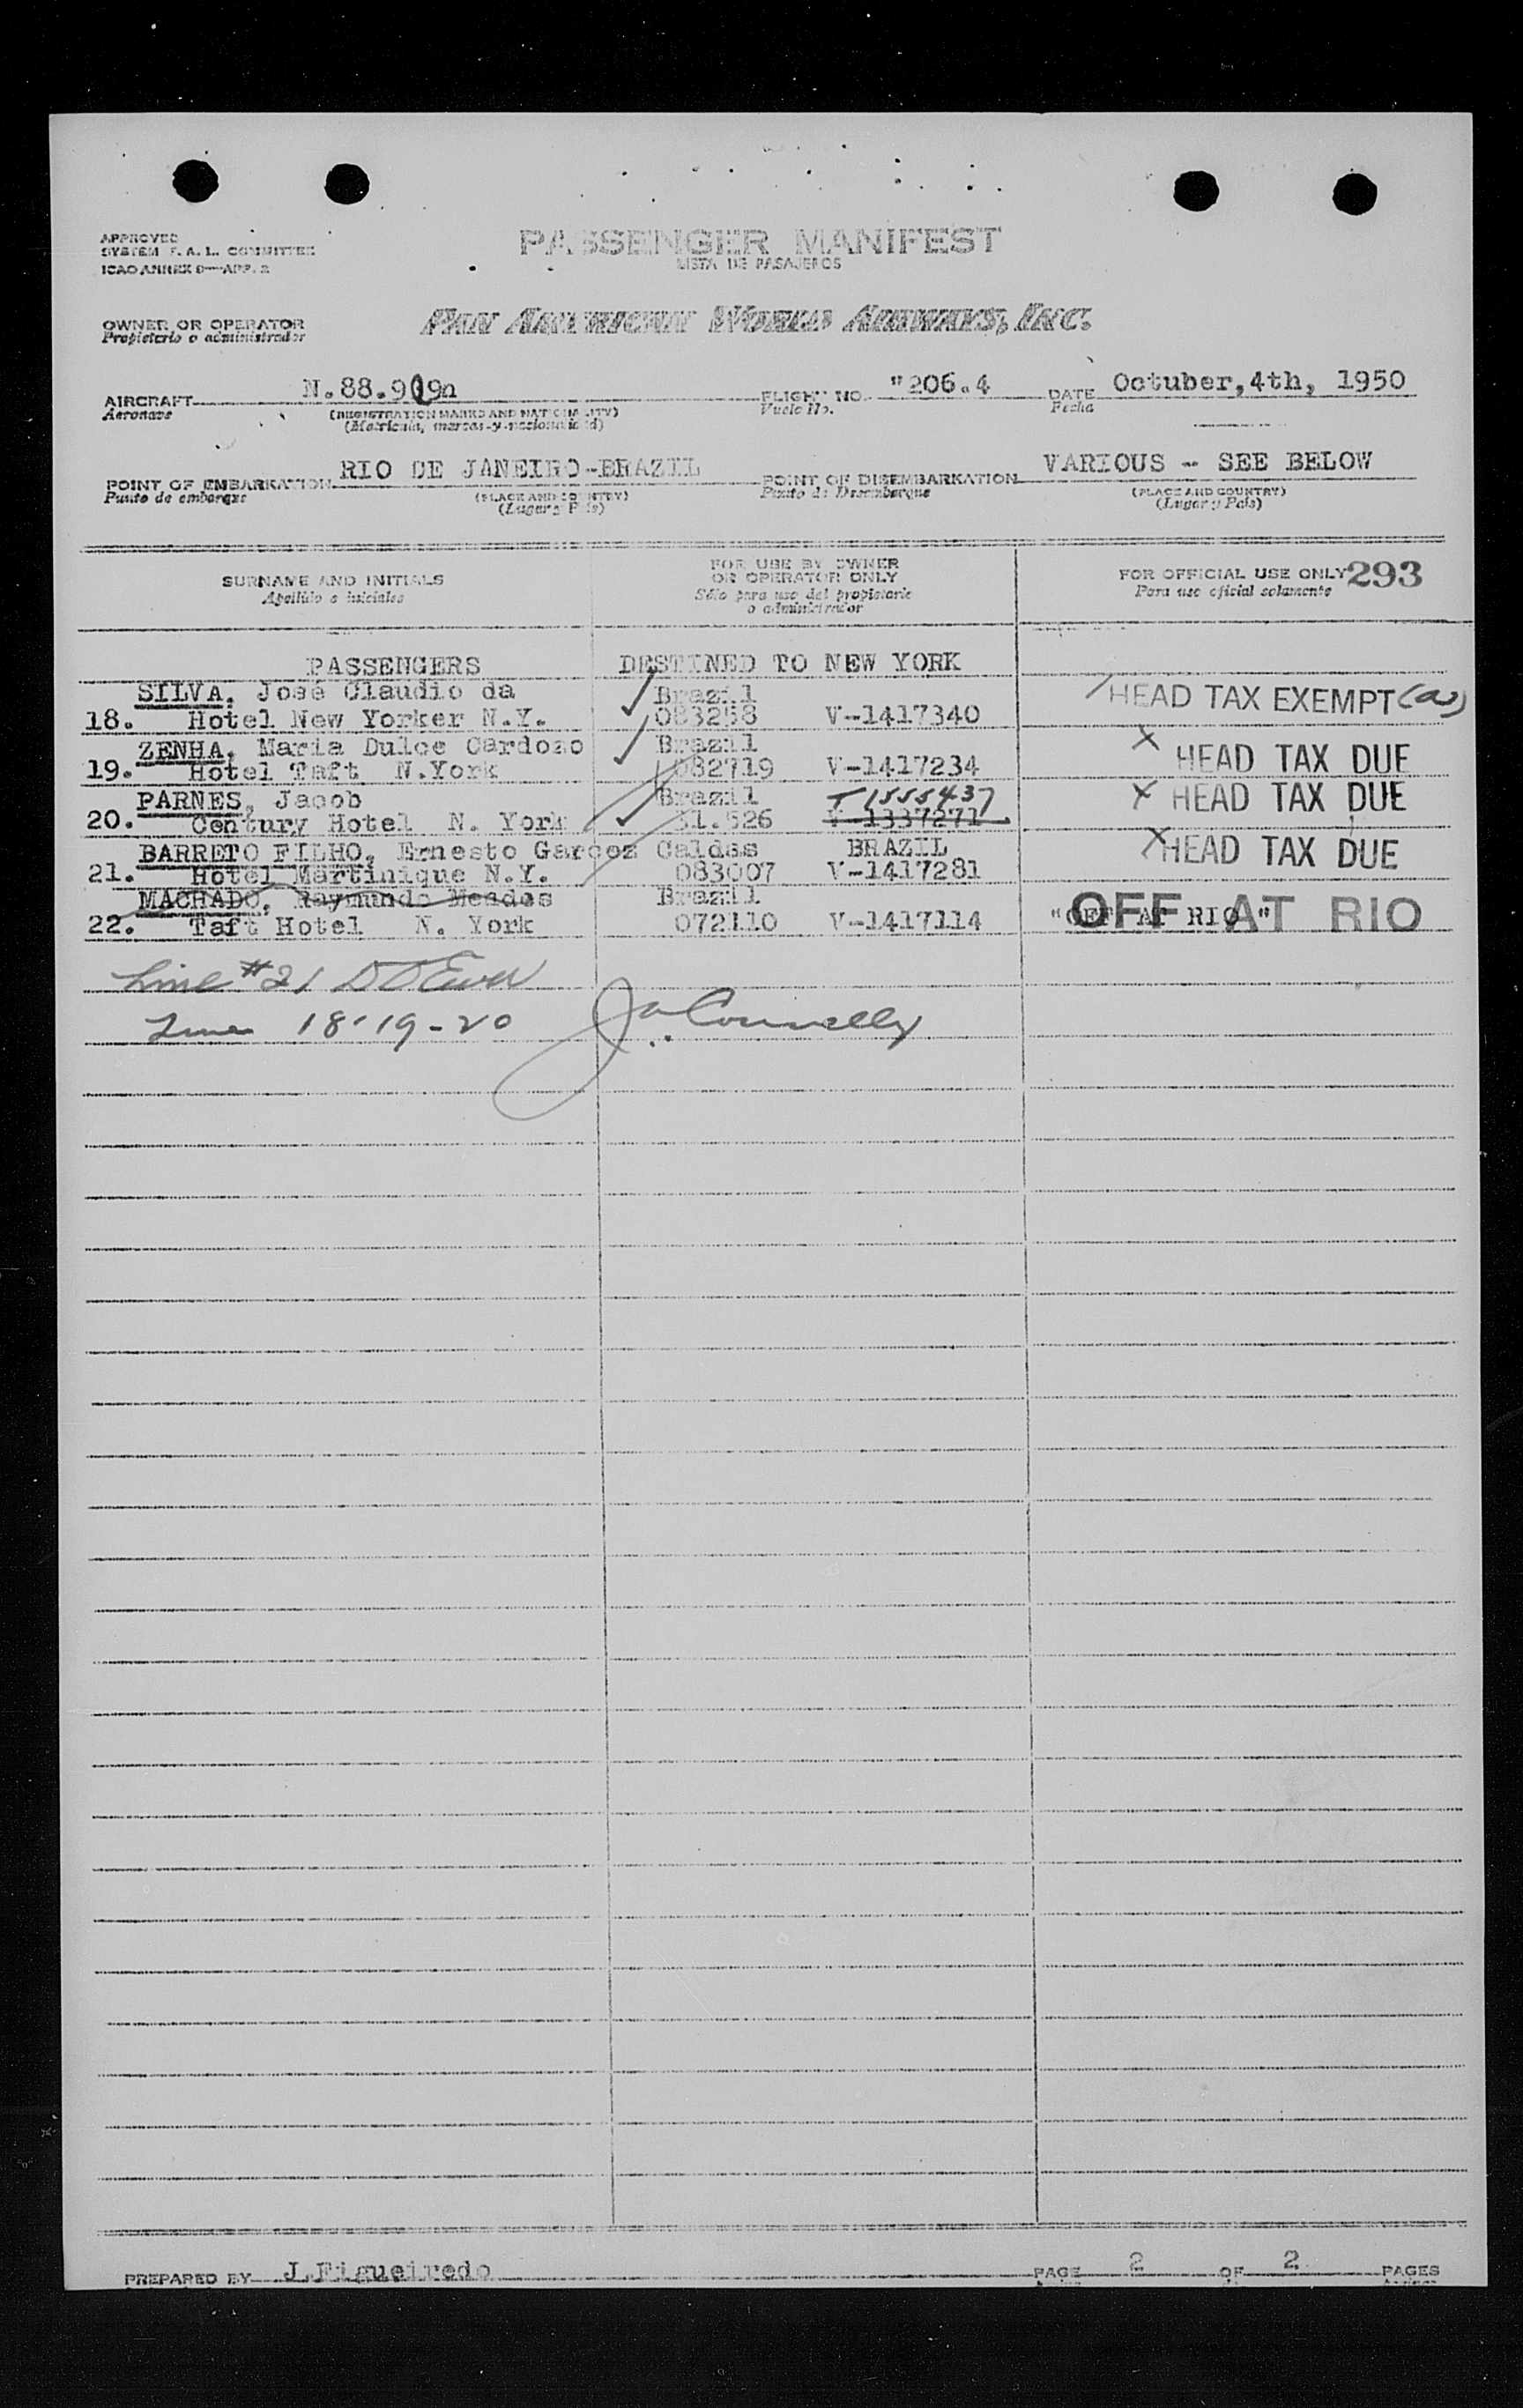 APPROVED
SYSTEM F. A. L. COMMITTEE
ICAO ANNEX 9—APP. 2
PASSENGER MANIFEST
LISTA DE PASAJEROS
OWNER OR OPERATOR
Propietario o administrador
PAN AMERICAN WORLD AIRWAYS, INC.
AIRCRAFT N.88.919n FLIGHT NO. "206.4 DATE Octuber,4th, 1950
Aeronave (REGISTRATION MARKS AND NATIONALITY) Vuelo No. Fecha
(Matricula, marcas y nacionalidad)
POINT OF EMBARKATION RIO DE JANEIRO-BRAZIL POINT OF DISEMBARKATION VARIOUS - SEE BELOW
Punto de embarque (PLACE AND COUNTRY) Punto de Desembarque (PLACE AND COUNTRY)
(Lugar y País) (Lugar y País)
SURNAME AND INITIALS
Apellido e iniciales
FOR USE BY OWNER
OR OPERATOR ONLY
Sólo para uso del propietario
o administrador
FOR OFFICIAL USE ONLY 293
Para uso oficial solamente
PASSENGERS DESTINED TO NEW YORK
SILVA, José Claudio da Brazil HEAD TAX EXEMPT (a)
18. Hotel New Yorker N.Y. 083258 V-1417340
ZENHA, Maria Dulce Cardoso Brazil X HEAD TAX DUE
19. Hotel Taft N.York 082719 V-1417234
PARNES, Jacob Brazil T 1555437 X HEAD TAX DUE
20. Century Hotel N. York 31.526 V-1337271
BARRETO FILHO, Ernesto Garcez Caldas BRAZIL X HEAD TAX DUE
21. Hotel Martinique N.Y. 083007 V-1417281
MACHADO, Raymundo Mendes Brazil
22. Taft Hotel N. York 072110 V-1417114 "OFF AT RIO" OFF AT RIO
Line #21
Lines 18-19-20 Connelly
PREPARED BY J.Figueiredo PAGE 2 OF 2 PAGES